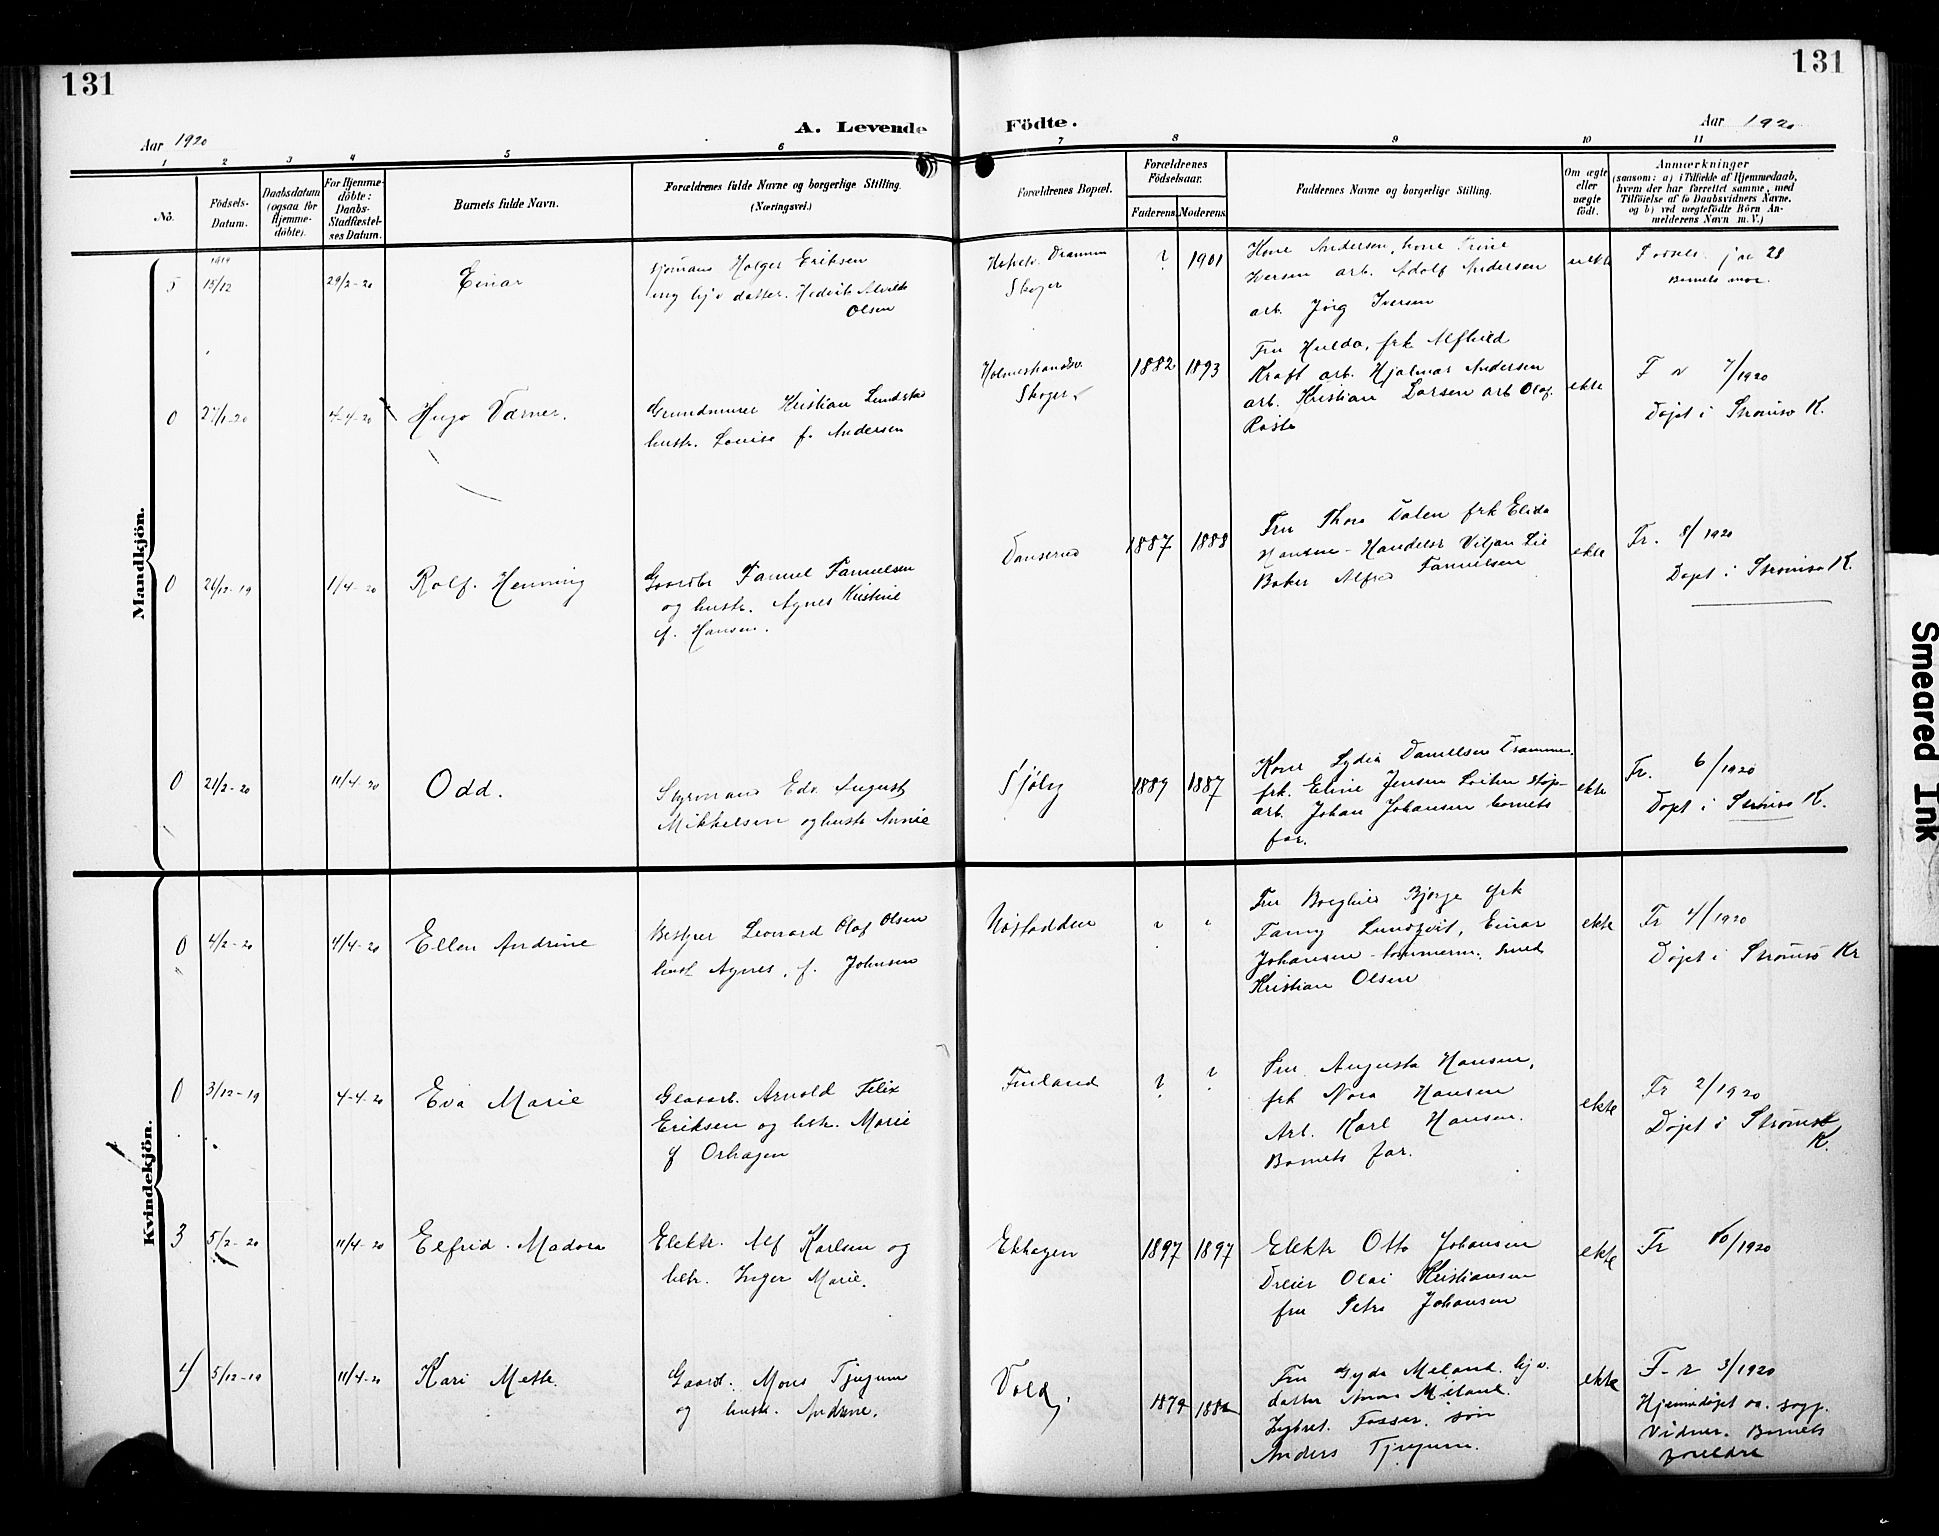 131
131
Aar 1920
A. Levende
Födte.
Aar 1920
1
2
3
4
5
6
7
8
9
10
11
No.
Födsels-
Datum.
Daabsdatum
(ogsaa for
Hjemme-
döbte).
For Hjemme-
döbte:
Daabs-
Stadfæstel-
ses Datum.
Barnets fulde Navn.
Forældrenes fulde Navne og borgerlige Stilling.
(Næringsvei.)
Forældrenes Bopæl.
Forældrenes
Födselsaar.
Faderens.
Moderens.
Faddernes Navne og borgerlige Stilling.
Om ægte
eller
uægte
født.
Anmærkninger
(saasom: a) i Tilfælde af Hjemmedaab,
hvem der har forrettet samme, med
Tilföielse af to Daabsvidners Navne,
og b) ved uægtefödte Börn An-
melderens Navn m. V.)
Mandkjön.
5
1919
15/12
29/2-20
Einar
Sjømand Holger Eriksen
ug lijv datter. Hedvik Alvilde
Olsen
Drammen
Skoger
?
1901
Kone Andersen, kone Trine
Iversen arb. Adolf Andersen
arb. Jörg Iversen
uekte
28
Barnets mor.
0
27/1-20
4-4-20
Hugo Varner.
Grundmurer Kristian Lundsbo
hustr. Louise f. Andersen
Holmestrandsv.
Skoger
1882
1893
Fru Hulda, frk Alfhild
Kraft arb. Hjalmar Andersen
arb. Kristian Larsen arb Olaf
Roste
ekte
F r 7/1920
Døpt i Strømsø K.
0
26/12-19
1/4-20
Rolf. Henning
Gaardbr Samuel Samuelsen
og hustr. Agnes Kristine
f. Hansen.
Danserud
1887
1888
Fru Thora Dalen frk Elida
Hansen - Handelsr Viljan Lie
Baker Alfred Samuelsen
ekte
Fr. 8/1920
Døpt i Strømsø K.
0
21/2-20
11/4-20
Odd.
Styrmand Edv. August
Mikkelsen og hustr Annie
Fjøly
1889
1887
Kone Lydia Danielsen Drammen.
frk. Eline Jensen Loiten støp-
arb. Johan Johansen barnets
far.
ekte
Fr. 6/1920
Døpt i Strømsø K.
Kvindekjön.
0
4/2-20
4/4-20
Ellen Andrine
Bestyrer Leonard Olaf Olsen
hust Agnes, f. Johnsen
Nøstodden
?
?
Fru Borghild Bjerge frk
Fanny Lundqvist, Einar
Johansen - tømmerm. smed
Kristian Olsen
ekte
Fr 4/1920
Døpt i Strømsø Kr
0
3/12-19
4-4-20
Eva Marie
Glasarb. Arnold Felix
Eriksen og hstr. Marie
f Orhagen
Finland
?
?
Fru Augusta Hansen,
frk Nora Hansen
Arb. Karl Hansen.
Barnets far.
ekte
Fr 2/1920
Døpt i Strømsø
K.
3
5/2-20
11/4-20
Elfrid. Madora
Elektr. Alf Karlsen og
hstr. Inger Marie.
Ekhagen
1897
1897
Elektr Otto Johansen
Dreier Olai Kristiansen
fru Petra Johansen
ekte
Fr 10/1920
4
5/12-19
11/4-20
Kari Mette.
Gaardb. Mons Tjugum
og hustr. Andrine.
Vold
1879
1882
Fru Gyda Meland. lijv.
datter Anna Meland.
Fosser. søn
Anders Tjugum.
ekte
F-r 3/1920
Hjemmedøpt av. sogp.
Vidner. Barnets
foreldre
Smeared Ink